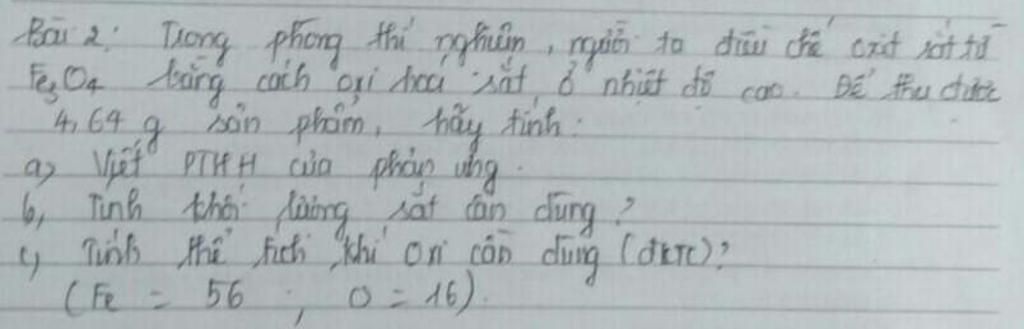 Bài 2: Trong phòng thí nghiệm, người ta điều chế oxit sắt từ
Fe3O4 bằng cách oxi hoá sắt ở nhiệt độ cao. Để thu được
4,64 g sản phẩm, hãy tính:
a) Viết PTHH của phản ứng.
b, Tính khối lượng sắt cần dùng?
c) Tính thể tích khí Oxi cần dùng (đktc)?
(Fe = 56 ; O = 16).